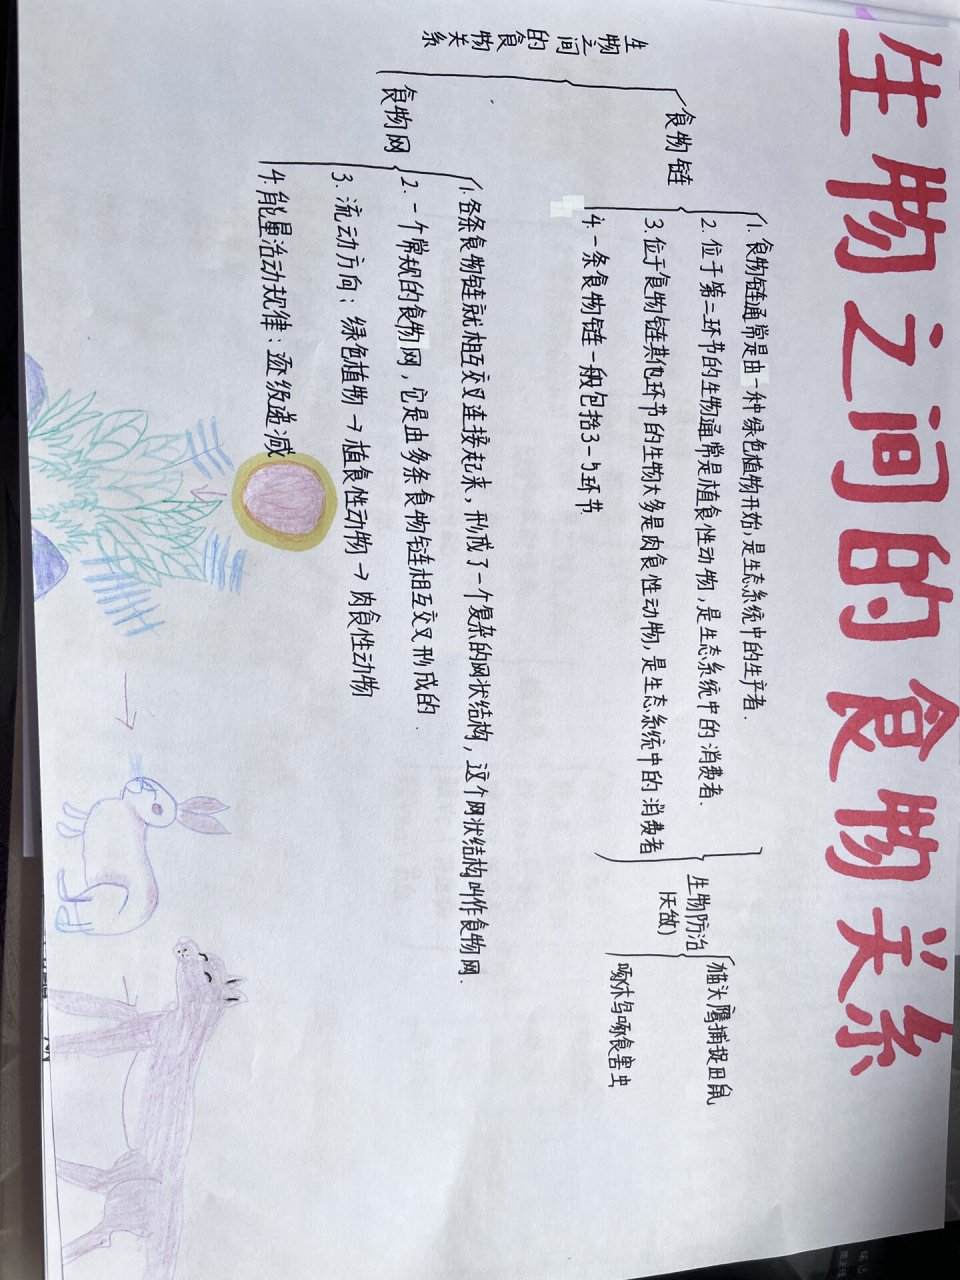 生物之间的食物关系
生物之间的食物关系
食物链
1. 食物链通常是由一种绿色植物开始,是生态系统中的生产者.
2. 位于第二环节的生物通常是植食性动物,是生态系统中的消费者.
3. 位于食物链其他环节的生物大多是肉食性动物,是生态系统中的消费者
4. 一条食物链一般包括3-5环节.
生物防治
(天敌)
猫头鹰捕捉田鼠
啄木鸟啄食害虫
食物网
1. 各条食物链就相互交叉连接起来,形成了一个复杂的网状结构,这个网状结构叫作食物网.
2. 一个常规的食物网,它是由多条食物链相互交叉形成的.
3. 流动方向:绿色植物→植食性动物→肉食性动物
4. 能量活动规律:逐级递减